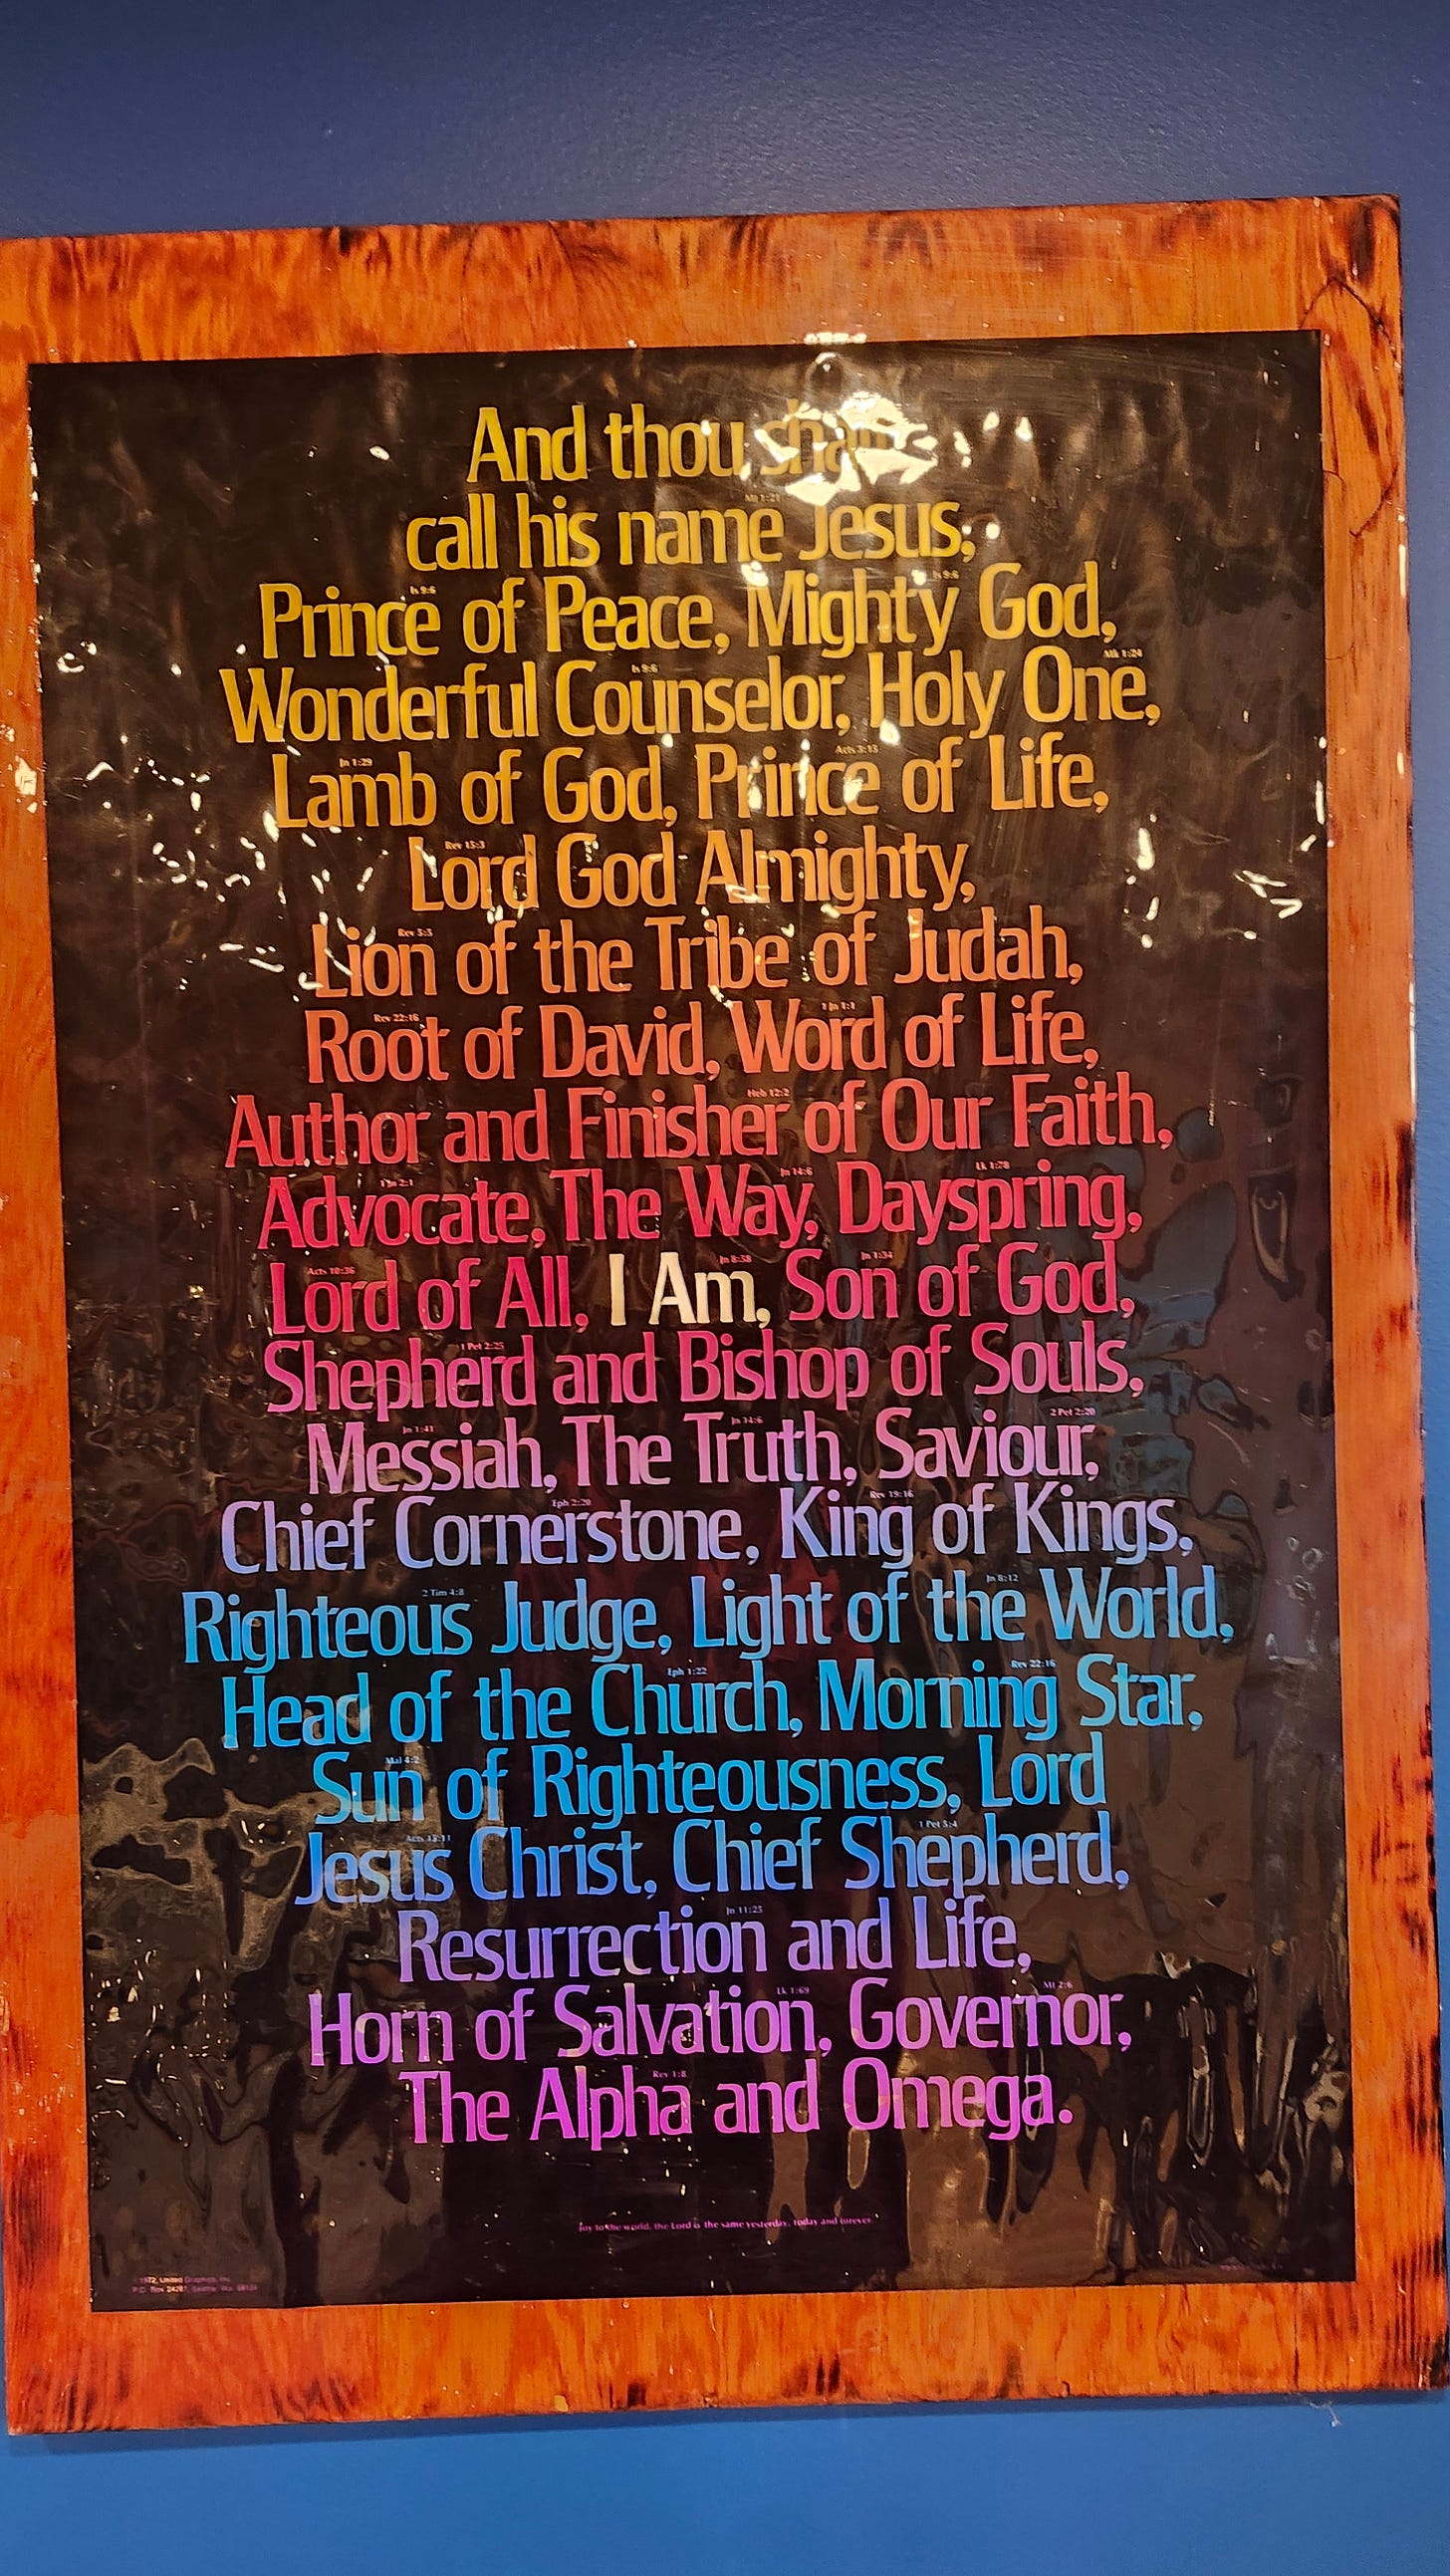 And thou shall
Mt 1:21
call his name Jesus,
Is 9:6 Is 9:6
Prince of Peace, Mighty God,
Is 9:6 Mk 1:24
Wonderful Counselor, Holy One,
Jn 1:29 Acts 3:15
Lamb of God, Prince of Life,
Rev 15:3
Lord God Almighty,
Rev 5:5
Lion of the Tribe of Judah,
Rev 22:16 1 Jn 1:1
Root of David, Word of Life,
Heb 12:2
Author and Finisher of Our Faith,
1 Jn 2:1 Jn 14:6 Lk 1:78
Advocate, The Way, Dayspring,
Acts 10:36 Jn 8:58 Jn 1:34
Lord of All, I Am, Son of God,
1 Pet 2:25
Shepherd and Bishop of Souls,
Jn 1:41 Jn 14:6 2 Pet 2:20
Messiah, The Truth, Saviour,
Eph 2:20 Rev 19:16
Chief Cornerstone, King of Kings,
2 Tim 4:8 Jn 8:12
Righteous Judge, Light of the World,
Eph 1:22 Rev 22:16
Head of the Church, Morning Star,
Mal 4:2
Sun of Righteousness, Lord
Acts 15:11 1 Pet 5:4
Jesus Christ, Chief Shepherd,
Jn 11:25
Resurrection and Life,
Lk 1:69 Mt 2:6
Horn of Salvation, Governor,
Rev 1:8
The Alpha and Omega.
Joy to the world, the Lord is the same yesterday, today and forever.
1972, United Graphics, Inc.
P.O. Box Seattle, Wa.